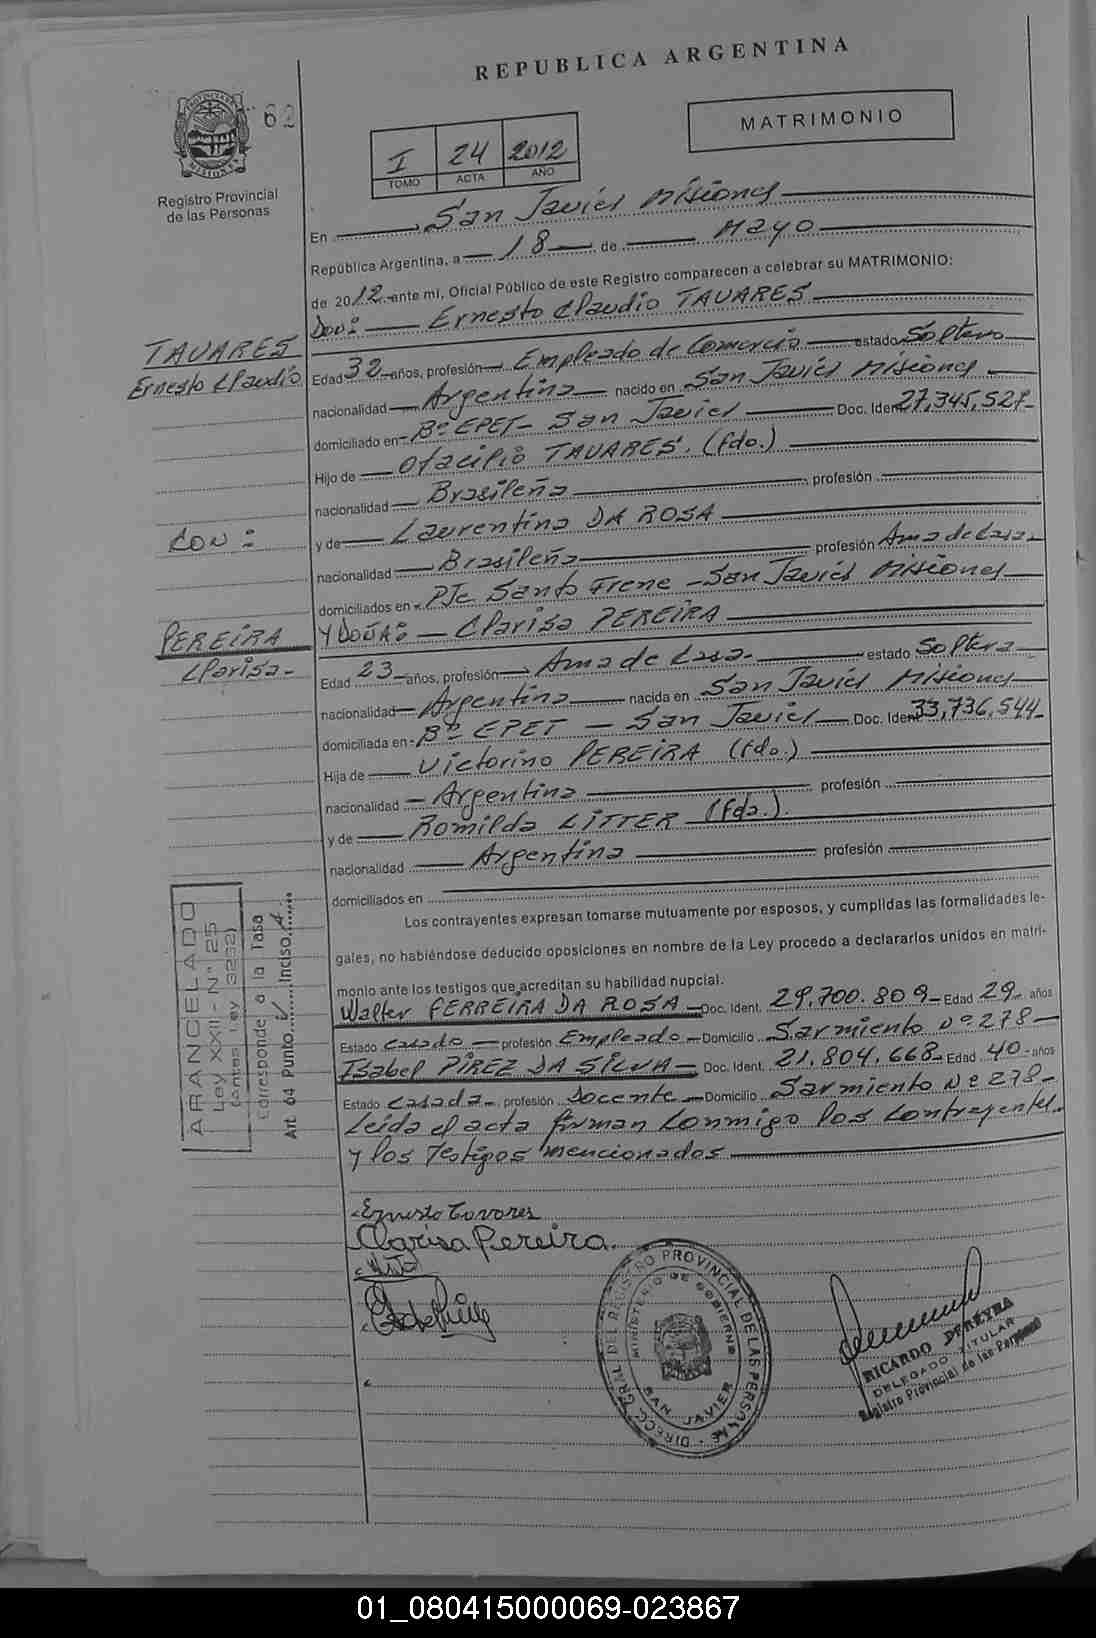 REPUBLICA ARGENTINA
62
MATRIMONIO
I 24 2012
TOMO ACTA AÑO
Registro Provincial
de las Personas
En San Javier Misiones
República Argentina, a 18 de Mayo
de 2012 ante mi, Oficial Público de este Registro comparecen a celebrar su MATRIMONIO:
Don: Ernesto Claudio TAVARES
TAVARES
Ernesto Claudio
Edad 32 años, profesión Empleado de Comercio estado Soltero
nacionalidad Argentina nacido en San Javier Misiones
domiciliado en Bº EPET - San Javier Doc. Ident 27,345,527
Hijo de Otacilio TAVARES. (fdo.)
nacionalidad Brasileña profesión
CON:
y de Laurentina DA ROSA
nacionalidad Brasileña profesión Ama de Casa
domiciliados en Pje Santo Irene - San Javier Misiones
PEREIRA
Clarisa
Y DOÑA: Clarisa PEREIRA
Edad 23 años, profesión Ama de Casa estado Soltera
nacionalidad Argentina nacida en San Javier Misiones
domiciliada en Bº EPET - San Javier Doc. Ident 33,736,544
Hija de Victorino PEREIRA (fdo.)
nacionalidad Argentina profesión
y de Romilda LITTER (fda.).
nacionalidad Argentina profesión
domiciliados en
Los contrayentes expresan tomarse mutuamente por esposos, y cumplidas las formalidades le-
gales, no habiéndose deducido oposiciones en nombre de la Ley procedo a declararlos unidos en matri-
monio ante los testigos que acreditan su habilidad nupcial.
Walter FERREIRA DA ROSA Doc. Ident. 29,700.809 Edad 29 años
Estado Casado profesión Empleado Domicilio Sarmiento Nº 278
Isabel PIREZ DA SILVA Doc. Ident. 21.804.668 Edad 40 años
Estado Casada profesión Docente Domicilio Sarmiento Nº 278
Leída el acta firman conmigo los contrayentes
y los Testigos mencionados
ARANCELADO
Ley XXII - Nº 25
(antes Ley 3252)
Corresponde a la Tasa
Art. 64 Punto V Inciso A
Ernesto Tavares
Clarisa Pereira.
DIRECC. GRAL. DEL REGISTRO PROVINCIAL DE LAS PERSONAS
MINISTERIO DE GOBIERNO
SAN JAVIER
RICARDO PEREYRA
DELEGADO TITULAR
Registro Provincial de las Personas
01_080415000069-023867